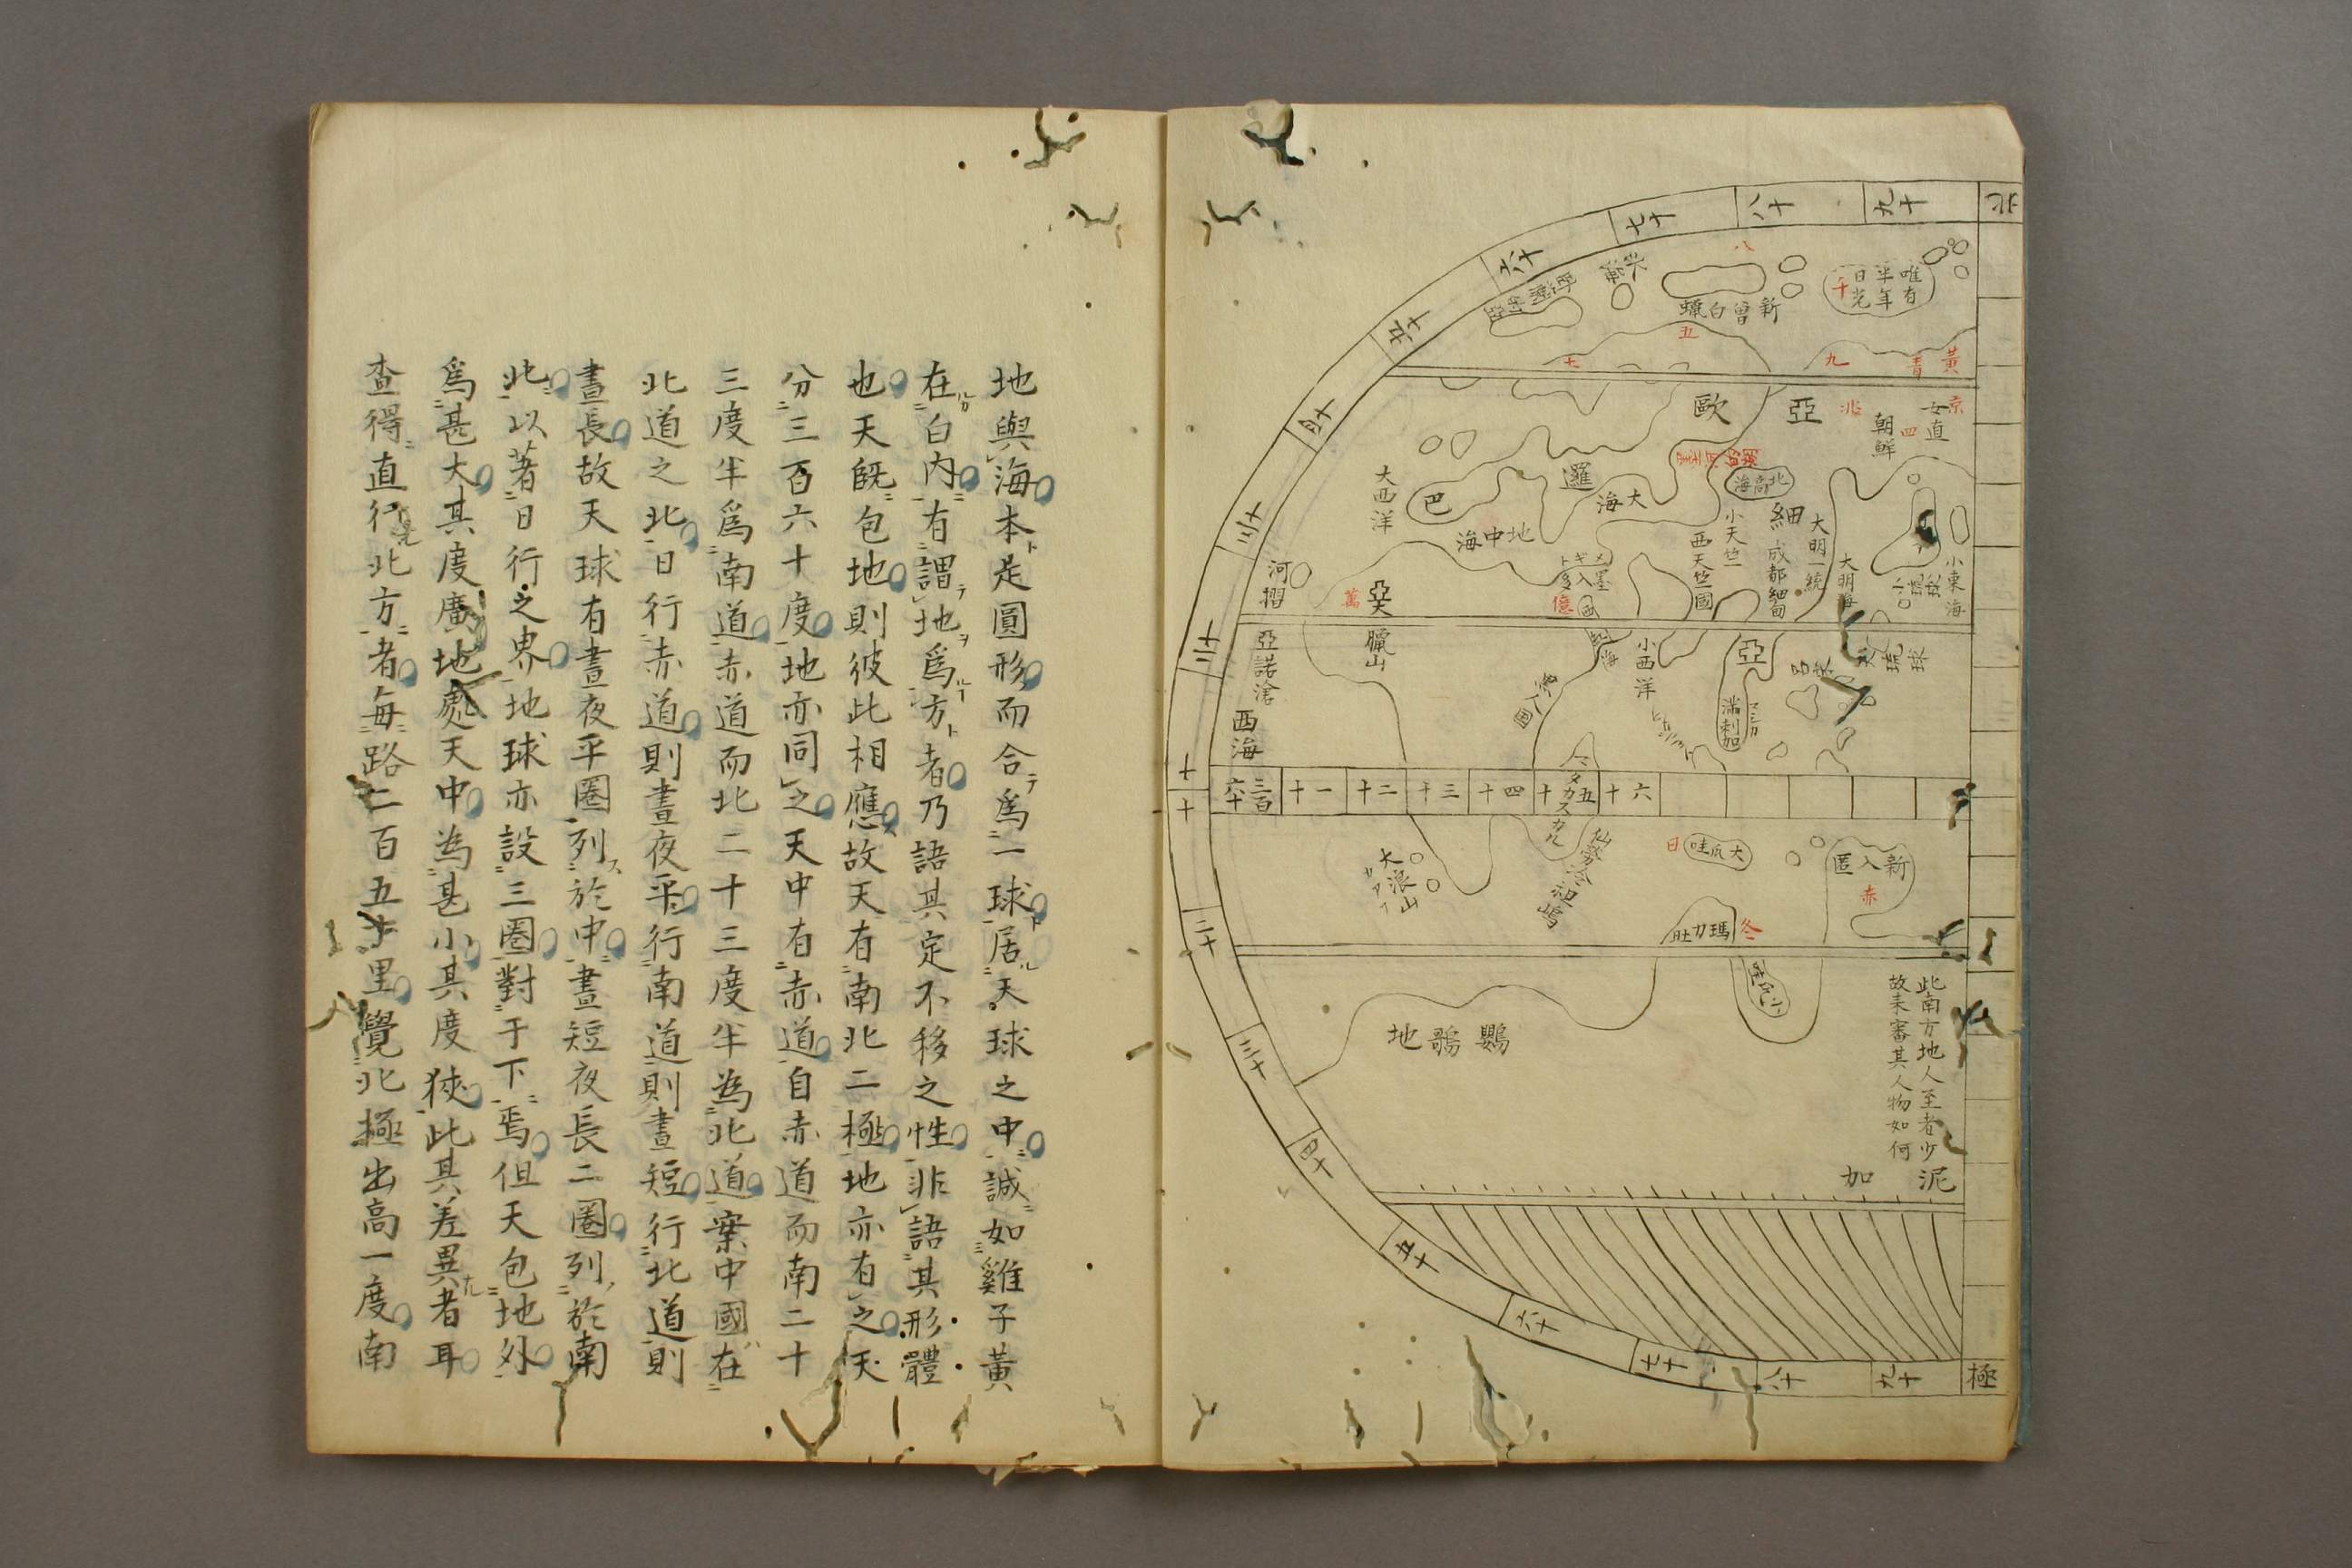 北
九十
八十
七十
六十
五十
四十
三十
二十
十
唯有
半年
日光
千
八
新曾白蠟
五
七
九
青
黃
歐
亞
兆
京
女直
四
朝鮮
邏
巴
大海
北高海
地中海
大西洋
細
小天竺
西天竺國
大明一統
成都緬甸
大明海
小東海
小琉球
河摺
萬
億
臘山
亞諾滄
西海
小西洋
亞
滿剌加
琉球
三百六十
一十
二十
三十
四十
五十
六十
マタカスカル
仙勞冷祖嶋
大浪山
日
大瓜哇
新入匿
赤
瑪力肚
冬
鸚鵡地
此南方地人至者少
故未審其人物如何
泥
加
十
二十
三十
四十
五十
六十
七十
八十
九十
極
地與海本是圓形而合爲一球居天球之中誠如雞子黃
在白內有謂地爲方者乃語其定不移之性非語其形體
也天既包地則彼此相應故天有南北二極地亦有之天
分三百六十度地亦同之天中有赤道自赤道而南二十
三度半爲南道赤道而北二十三度半為北道案中國在
北道之北日行赤道則晝夜平行南道則晝短行北道則
晝長故天球有晝夜平圈列於中晝短夜長二圈列於南
北以著日行之界地球亦設三圈對于下焉但天包地外
爲甚大其度廣地處天中為甚小其度狹此其差異者耳
查得直行北方者每路二百五十里覺北極出高一度南